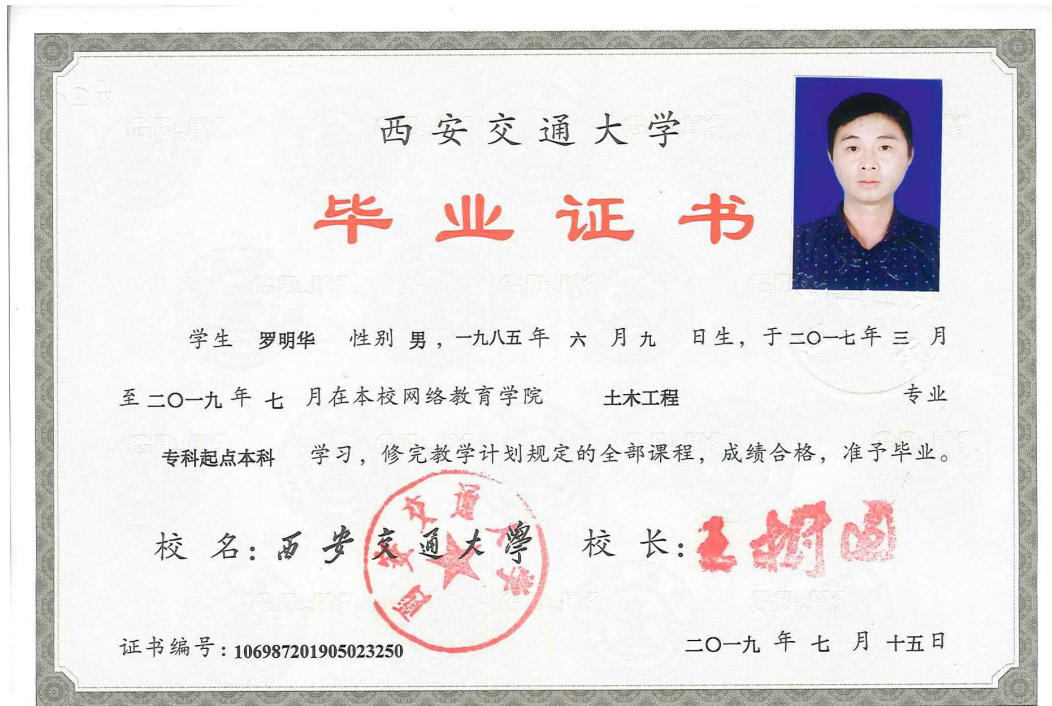 西安交通大学
毕业证书
学生 罗明华 性别 男，一九八五年 六 月 九 日生，于二〇一七年 三 月
至二〇一九年 七 月在本校网络教育学院 土木工程 专业
专科起点本科 学习，修完教学计划规定的全部课程，成绩合格，准予毕业。
校 名：西安交通大學 校 长：
西安交通大学
证书编号：106987201905023250 二〇一九 年 七 月 十五日